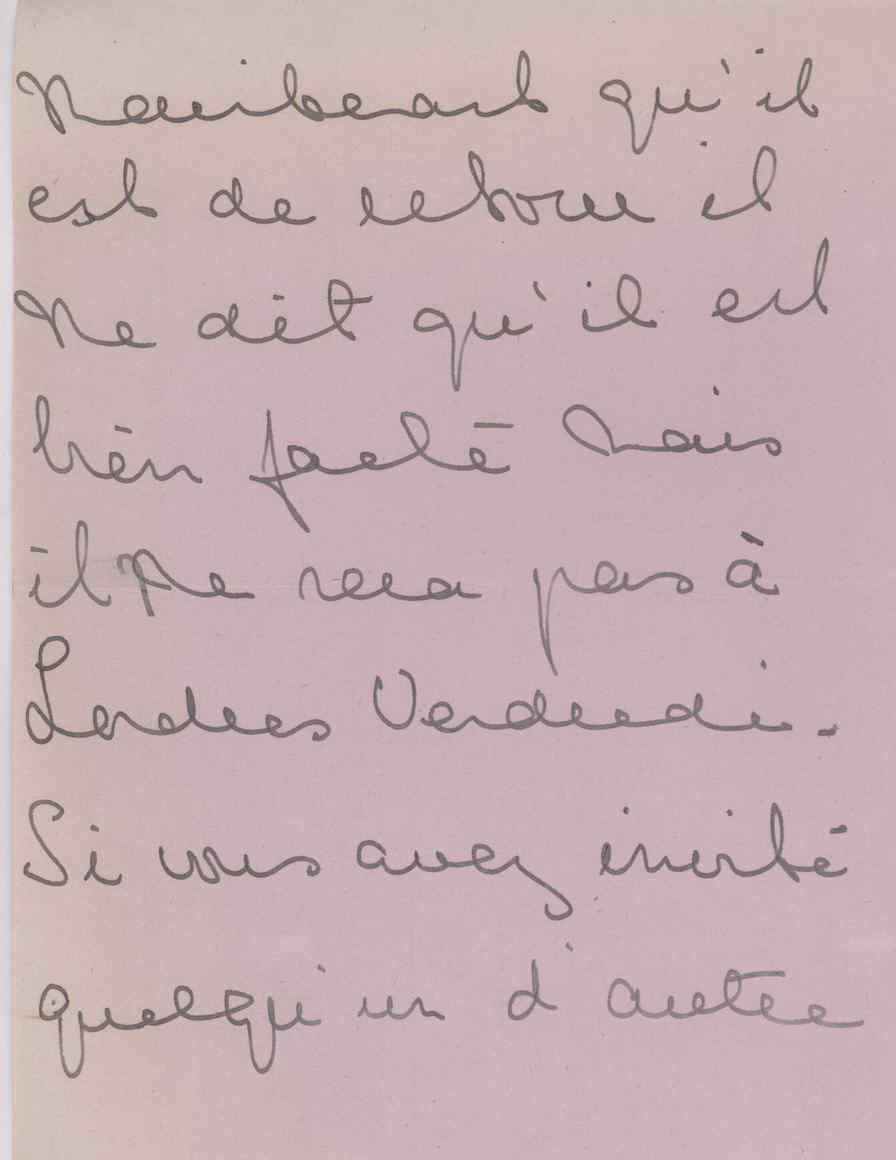 maintenant qu'il
est de retour il
me dit qu'il est
bien faché mais
il ne sera pas à
Londres Vendredi.
Si vous avez invité
quelqu'un d'autre